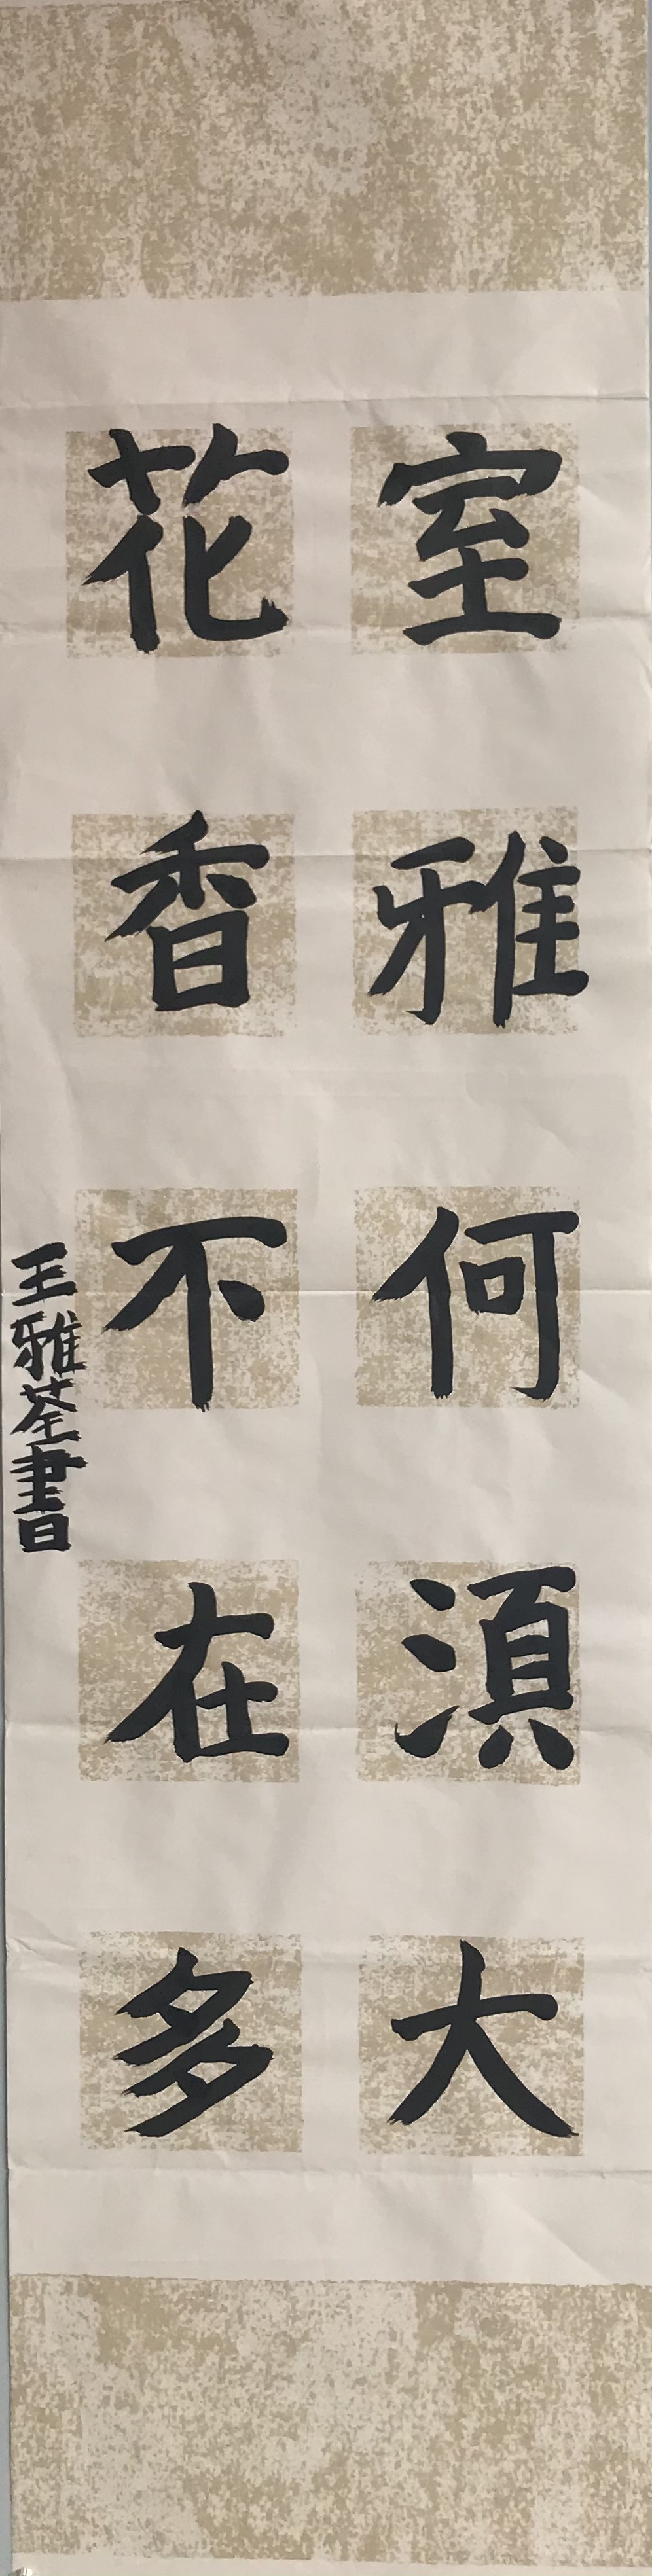 室雅何須大
花香不在多
王雅荃書